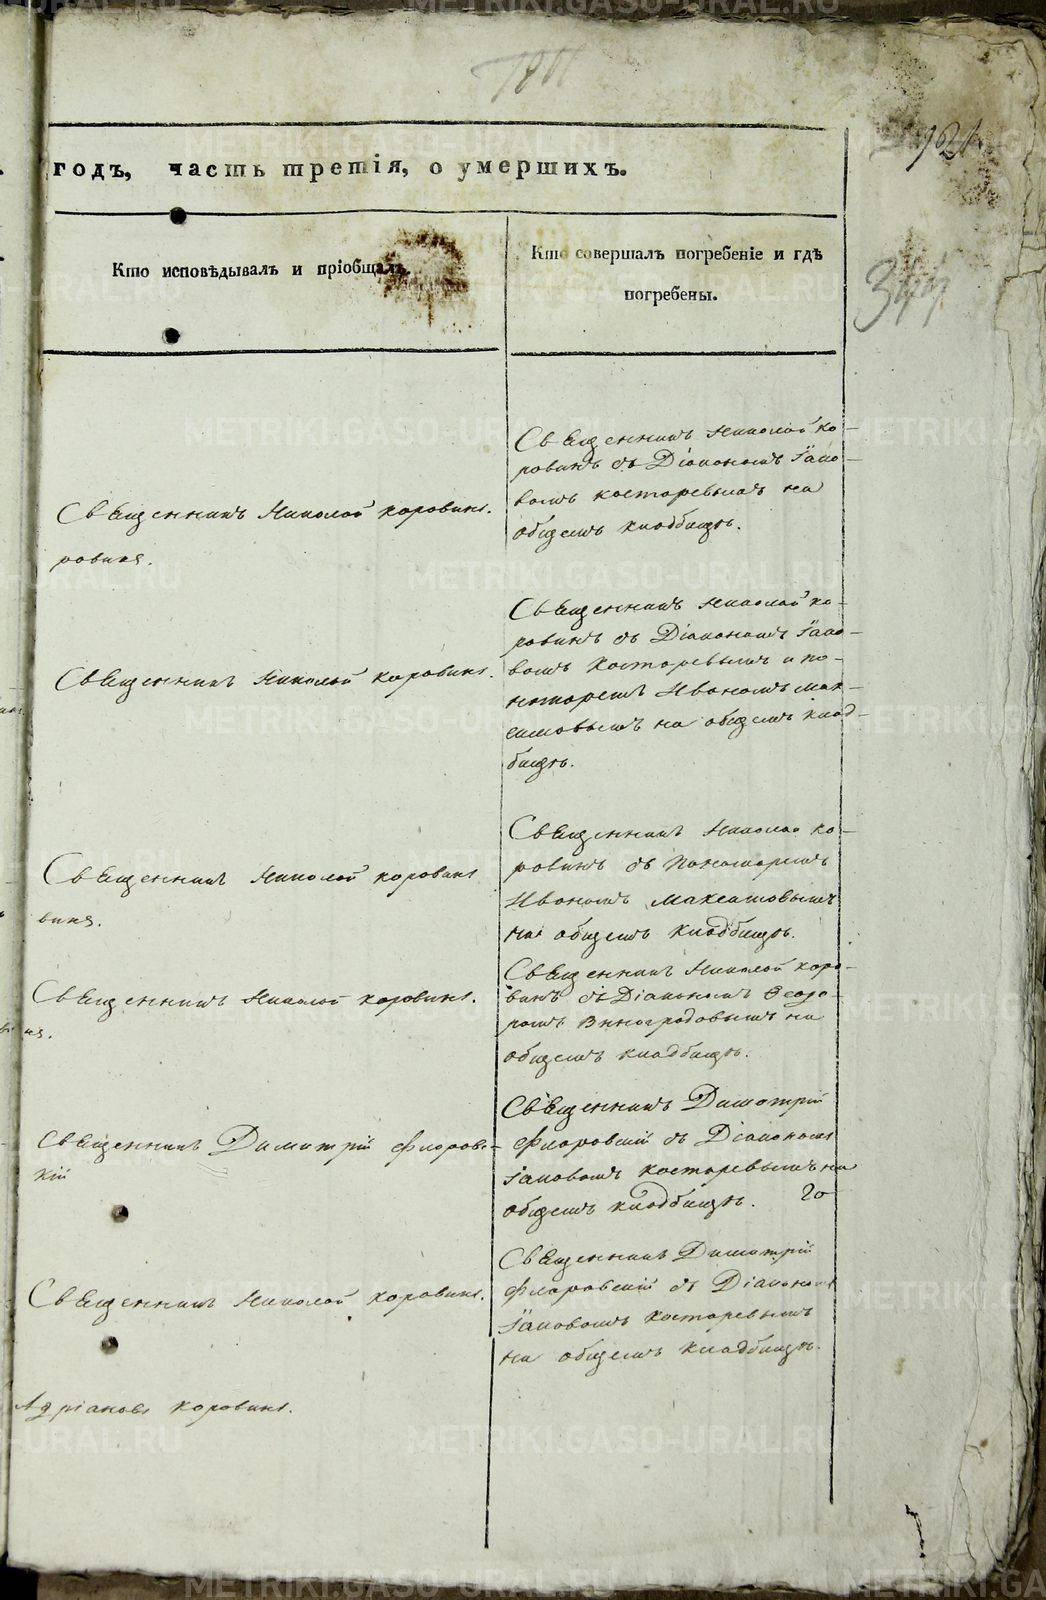 годъ, часть третія, о умершихъ.
Кто исповѣдывалъ и пріобщалъ.
Кто совершалъ погребеніе и гдѣ
погребены.
Священникъ Николай ко-
ровинъ съ Діакономъ Іако-
вомъ костаревымъ на
общемъ кладбищѣ.
Священникъ Николай коровинъ.
ровинъ.
Священникъ Николай ко-
ровинъ съ Діакономъ Іако-
вомъ костаревымъ и по-
номаремъ Иваномъ мак-
симовымъ на общемъ клад-
бищѣ.
Священникъ Николай коровинъ.
Священникъ Николай ко-
ровинъ съ пономаремъ
Иваномъ Максимовымъ
на общемъ кладбищѣ.
Священникъ Николай коровинъ
винъ.
Священникъ Николай коро-
винъ съ Діакономъ Ѳедо-
ромъ Виноградовымъ на
общемъ кладбищѣ.
Священникъ Николай коровинъ.
Священникъ Димитрій
флоровскій съ Діакономъ
Іаковомъ костаревымъ на
общемъ кладбищѣ.
Священникъ Димитрій флоровс-
кій
Священникъ Димитрій
флоровскій съ Діакономъ
Іаковомъ костаревымъ
на общемъ кладбищѣ.
Священникъ Николай коровинъ.
Адріановъ коровинъ.
METRIKI.GASO-URAL.RU